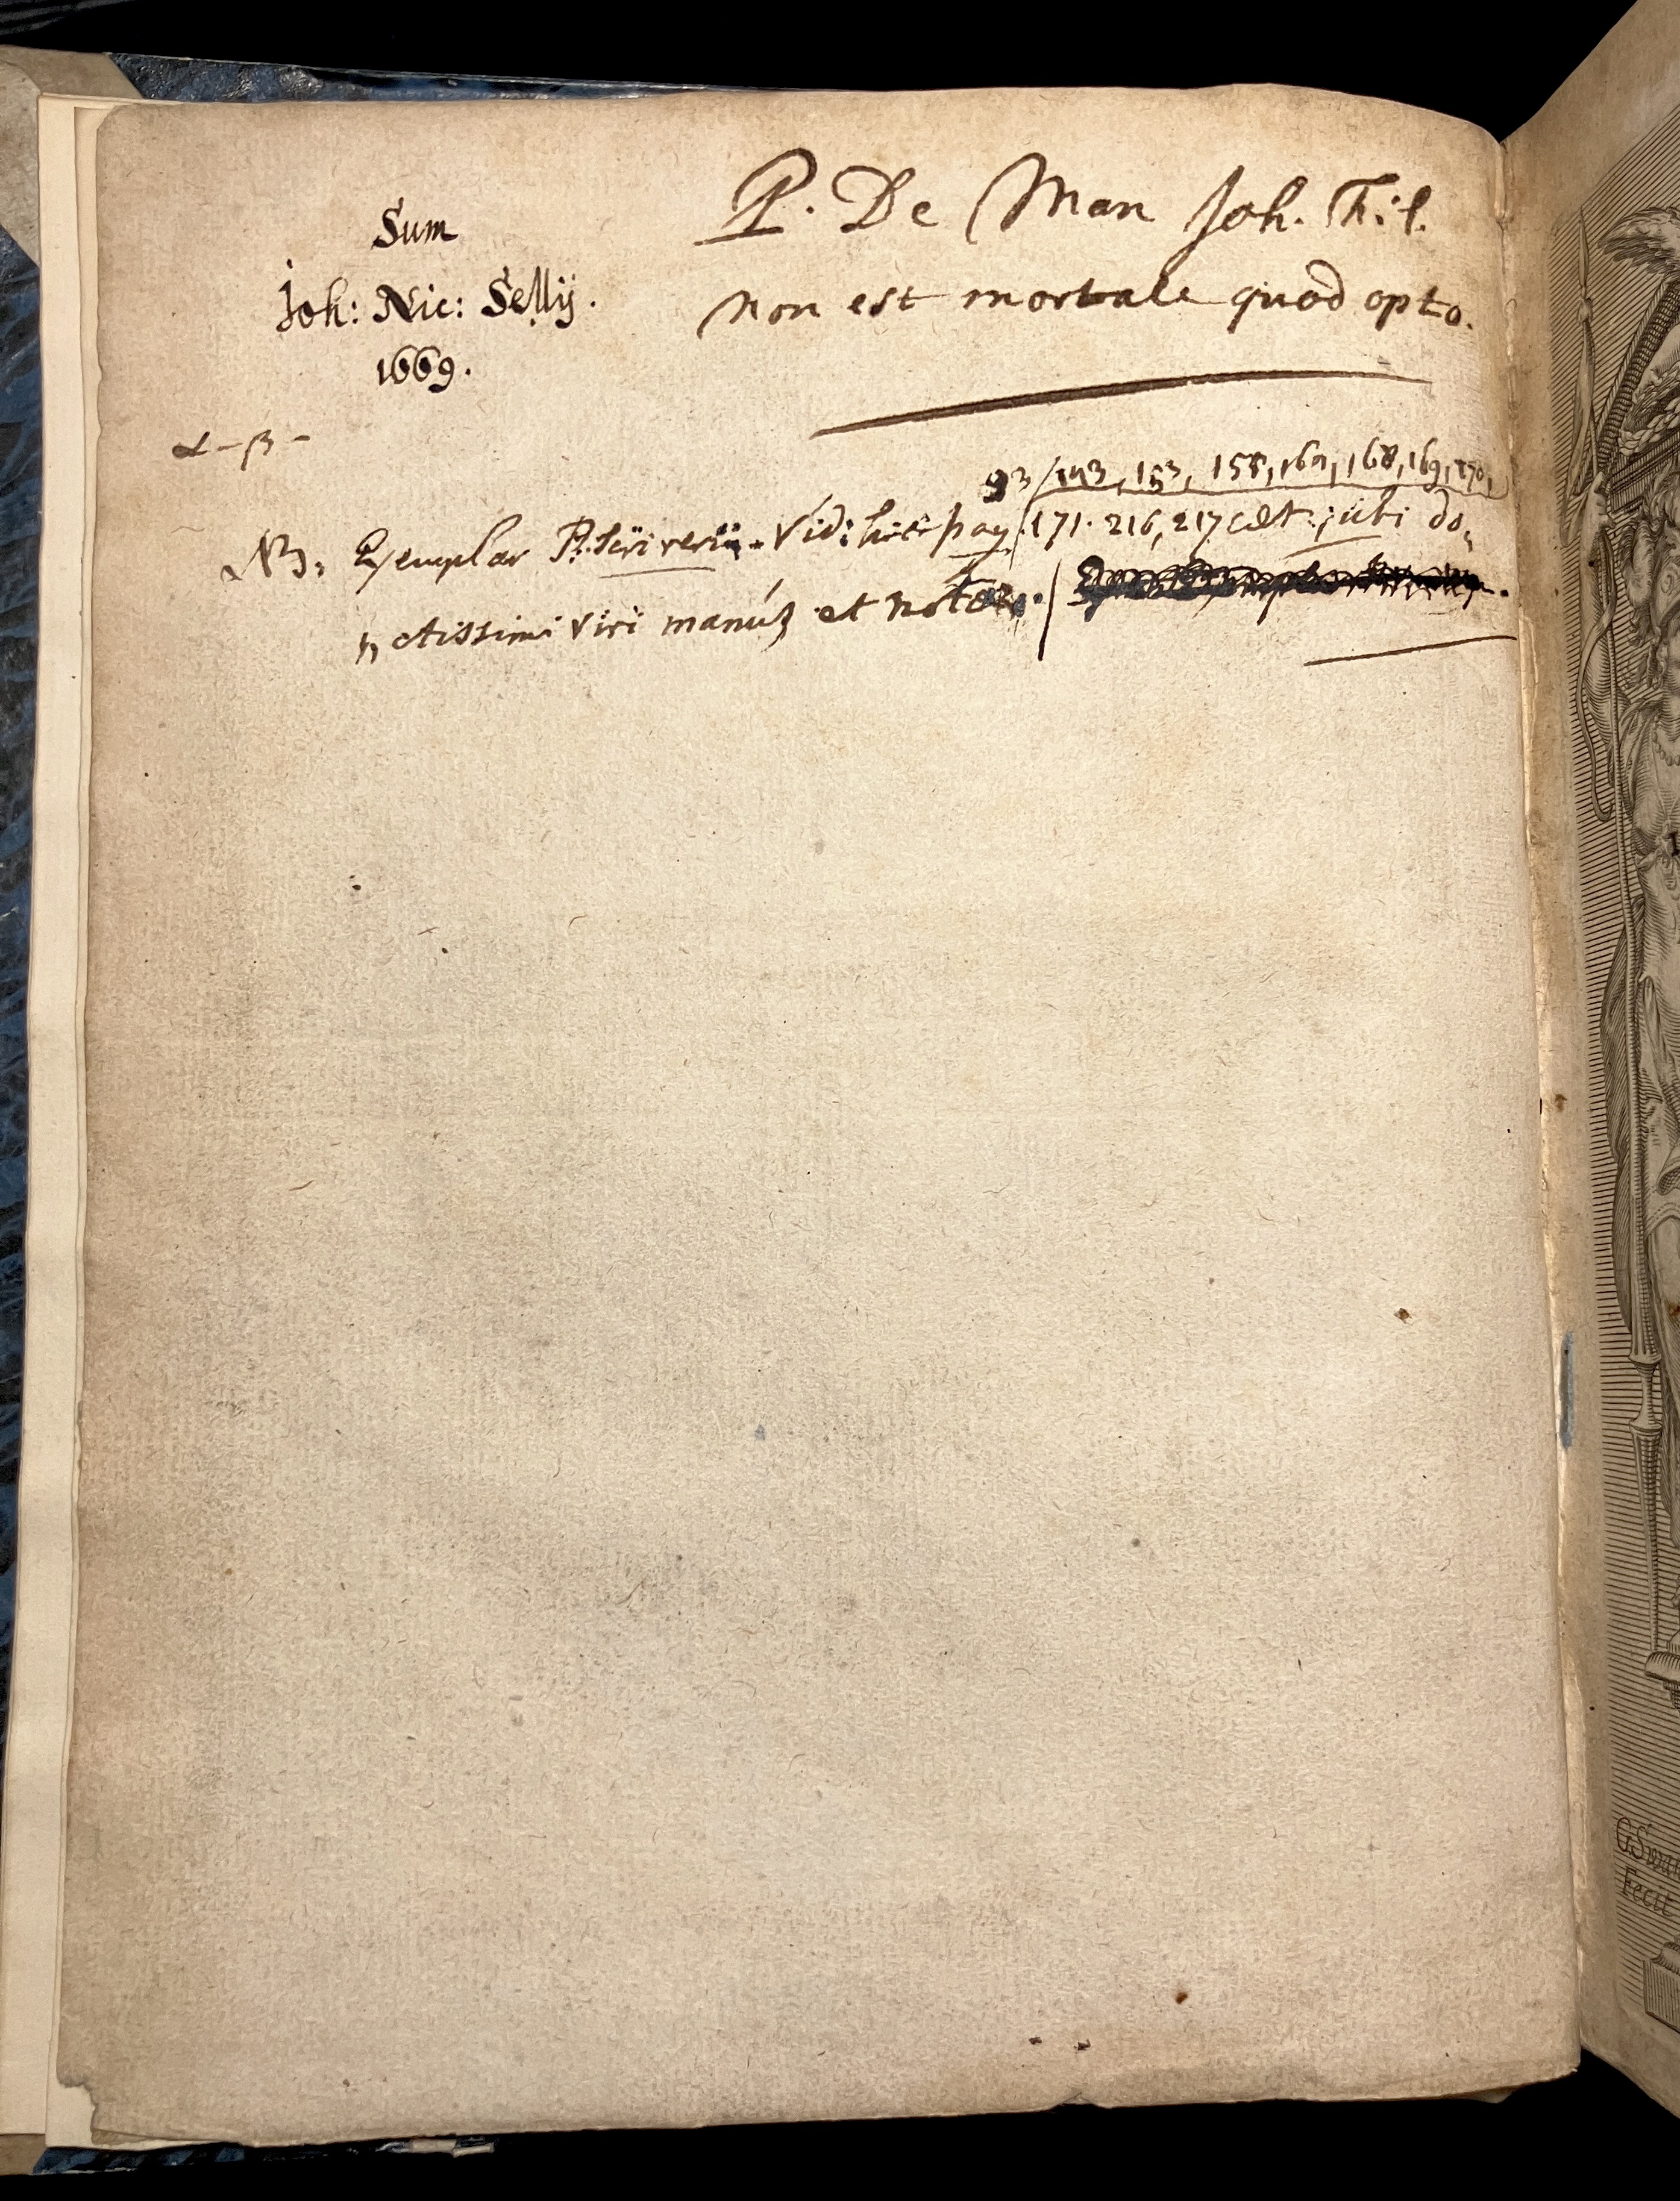 Sum
Joh: Nic: Sellij.
1669.
P. De Man Joh. Fil.
non est mortale quod opto.
α - β -
93/143, 153, 158, 168, 169, 170,
NB: Exemplar P. Scriverii. Vid: hic pag. 171. 216, 217 cæt.; ubi do,
ctissimi viri manús et notæ.
GSwa
Fecit